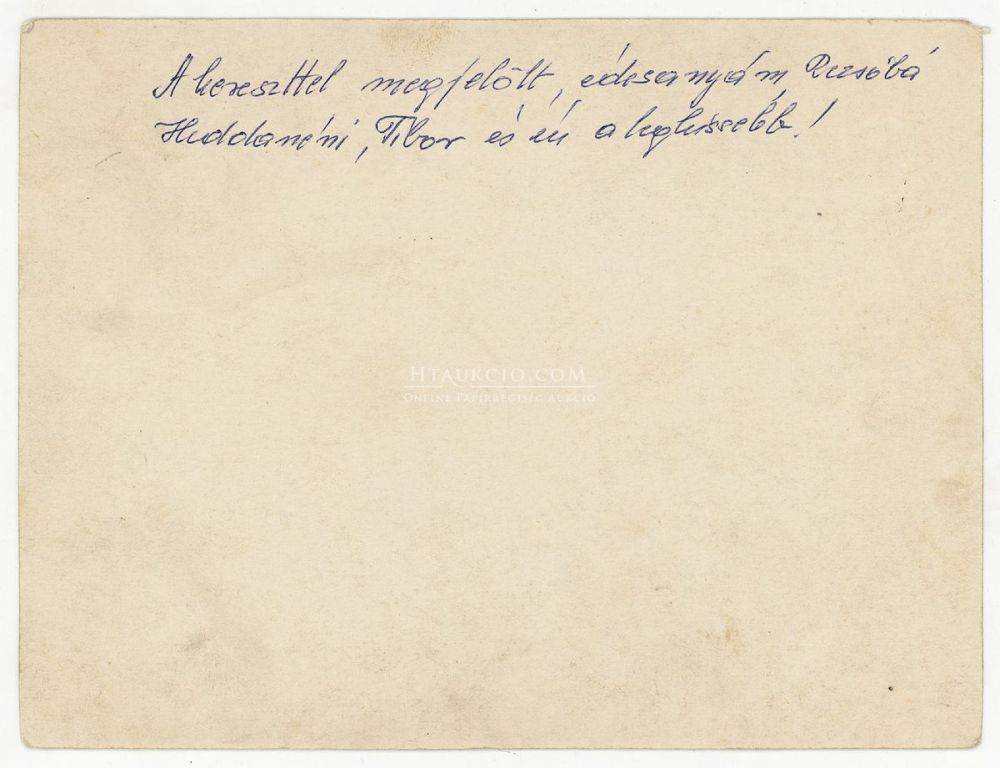 A kereszttel megjelölt, édesanyám Rezsőbá
Huddanéni, Tibor és én a legkissebb!
HTAUKCIO.COM
ONLINE PAPÍRRÉGISÉG AUKCIÓ